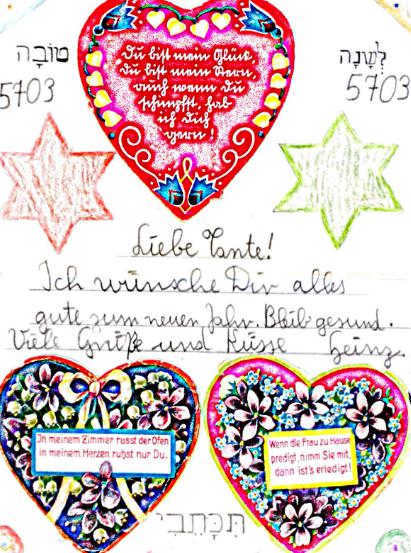 לְשָׁנָה טוֹבָה
5703 5703
Du bist mein Glück,
du bist mein Stern,
auch wenn du
schimpfst, hab
ich dich
gern!
Liebe Tante!
Ich wünsche Dir alles
gute zum neuen Jahr. Bleib gesund.
Viele Grüße und Küsse Heinz.
In meinem Zimmer russt der Ofen
in meinem Herzen ruhst nur Du.
Wenn die Frau zu Hause
predigt, nimm Sie mit,
dann ist's erledigt!
תִּכָּתְבִי